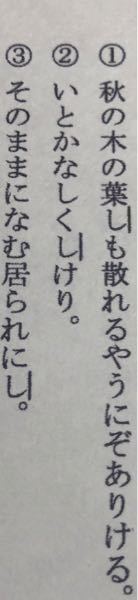 ① 秋の木の葉しも散れるやうにぞありける。
② いとかなしくしけり。
③ そのままになむ居られにし。